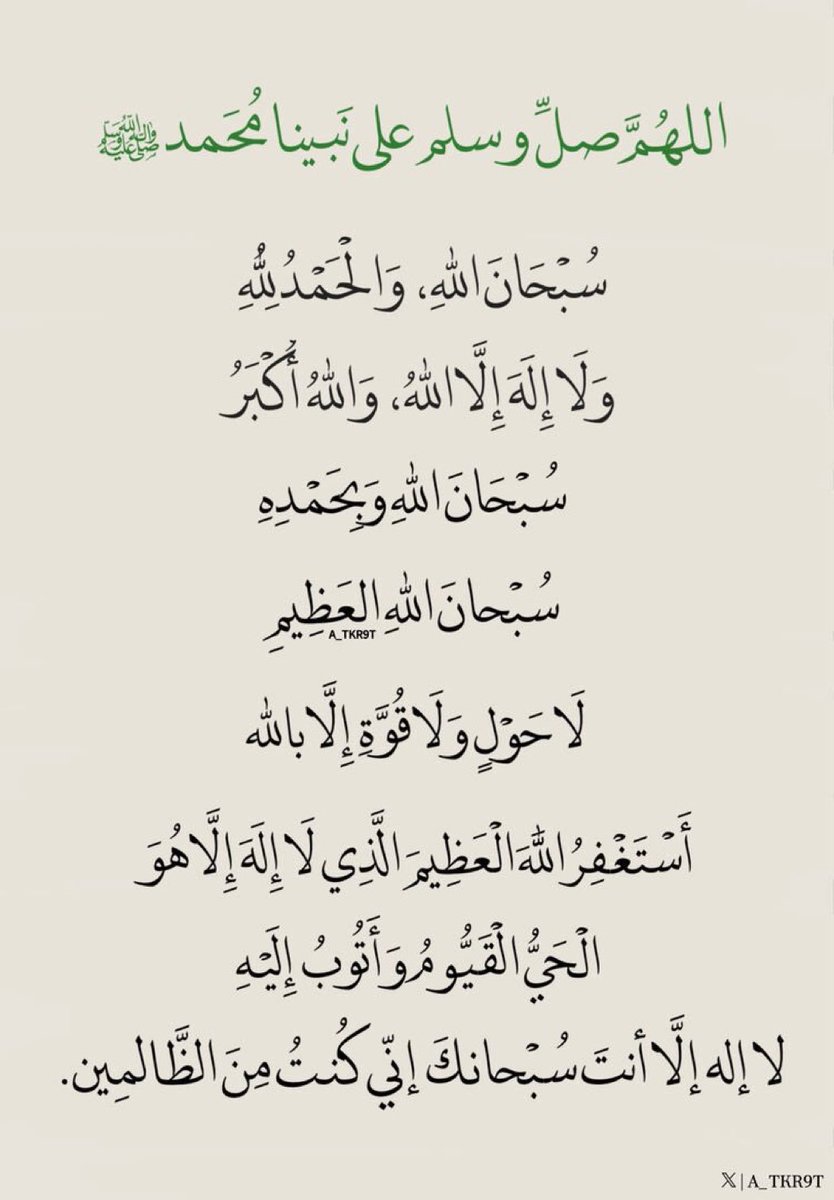 اللهُمَّ صلِّ وسلم على نَبينا مُحَمد ﷺ
سُبْحَانَ اللهِ، وَالْحَمْدُ لِلّهِ
وَلَا إِلَهَ إِلَّا اللهُ، وَاللهُ أَكْبَرُ
سُبْحَانَ اللهِ وَبِحَمْدِهِ
سُبْحانَ اللهِ العَظِيمِ
A_TKR9T
لَا حَوْلٍ وَلَا قُوَّةِ إِلَّا بالله
أَسْتَغْفِرُ اللَّهَ الْعَظِيمَ الَّذِي لَا إِلَهَ إِلَّا هُوَ
الْحَيُّ الْقَيُّومُ وَأَتُوبُ إِلَيْهِ
لا إله إلَّا أنتَ سُبْحانكَ إنّي كُنتُ مِنَ الظَّالمِين.
𝕏 | A_TKR9T